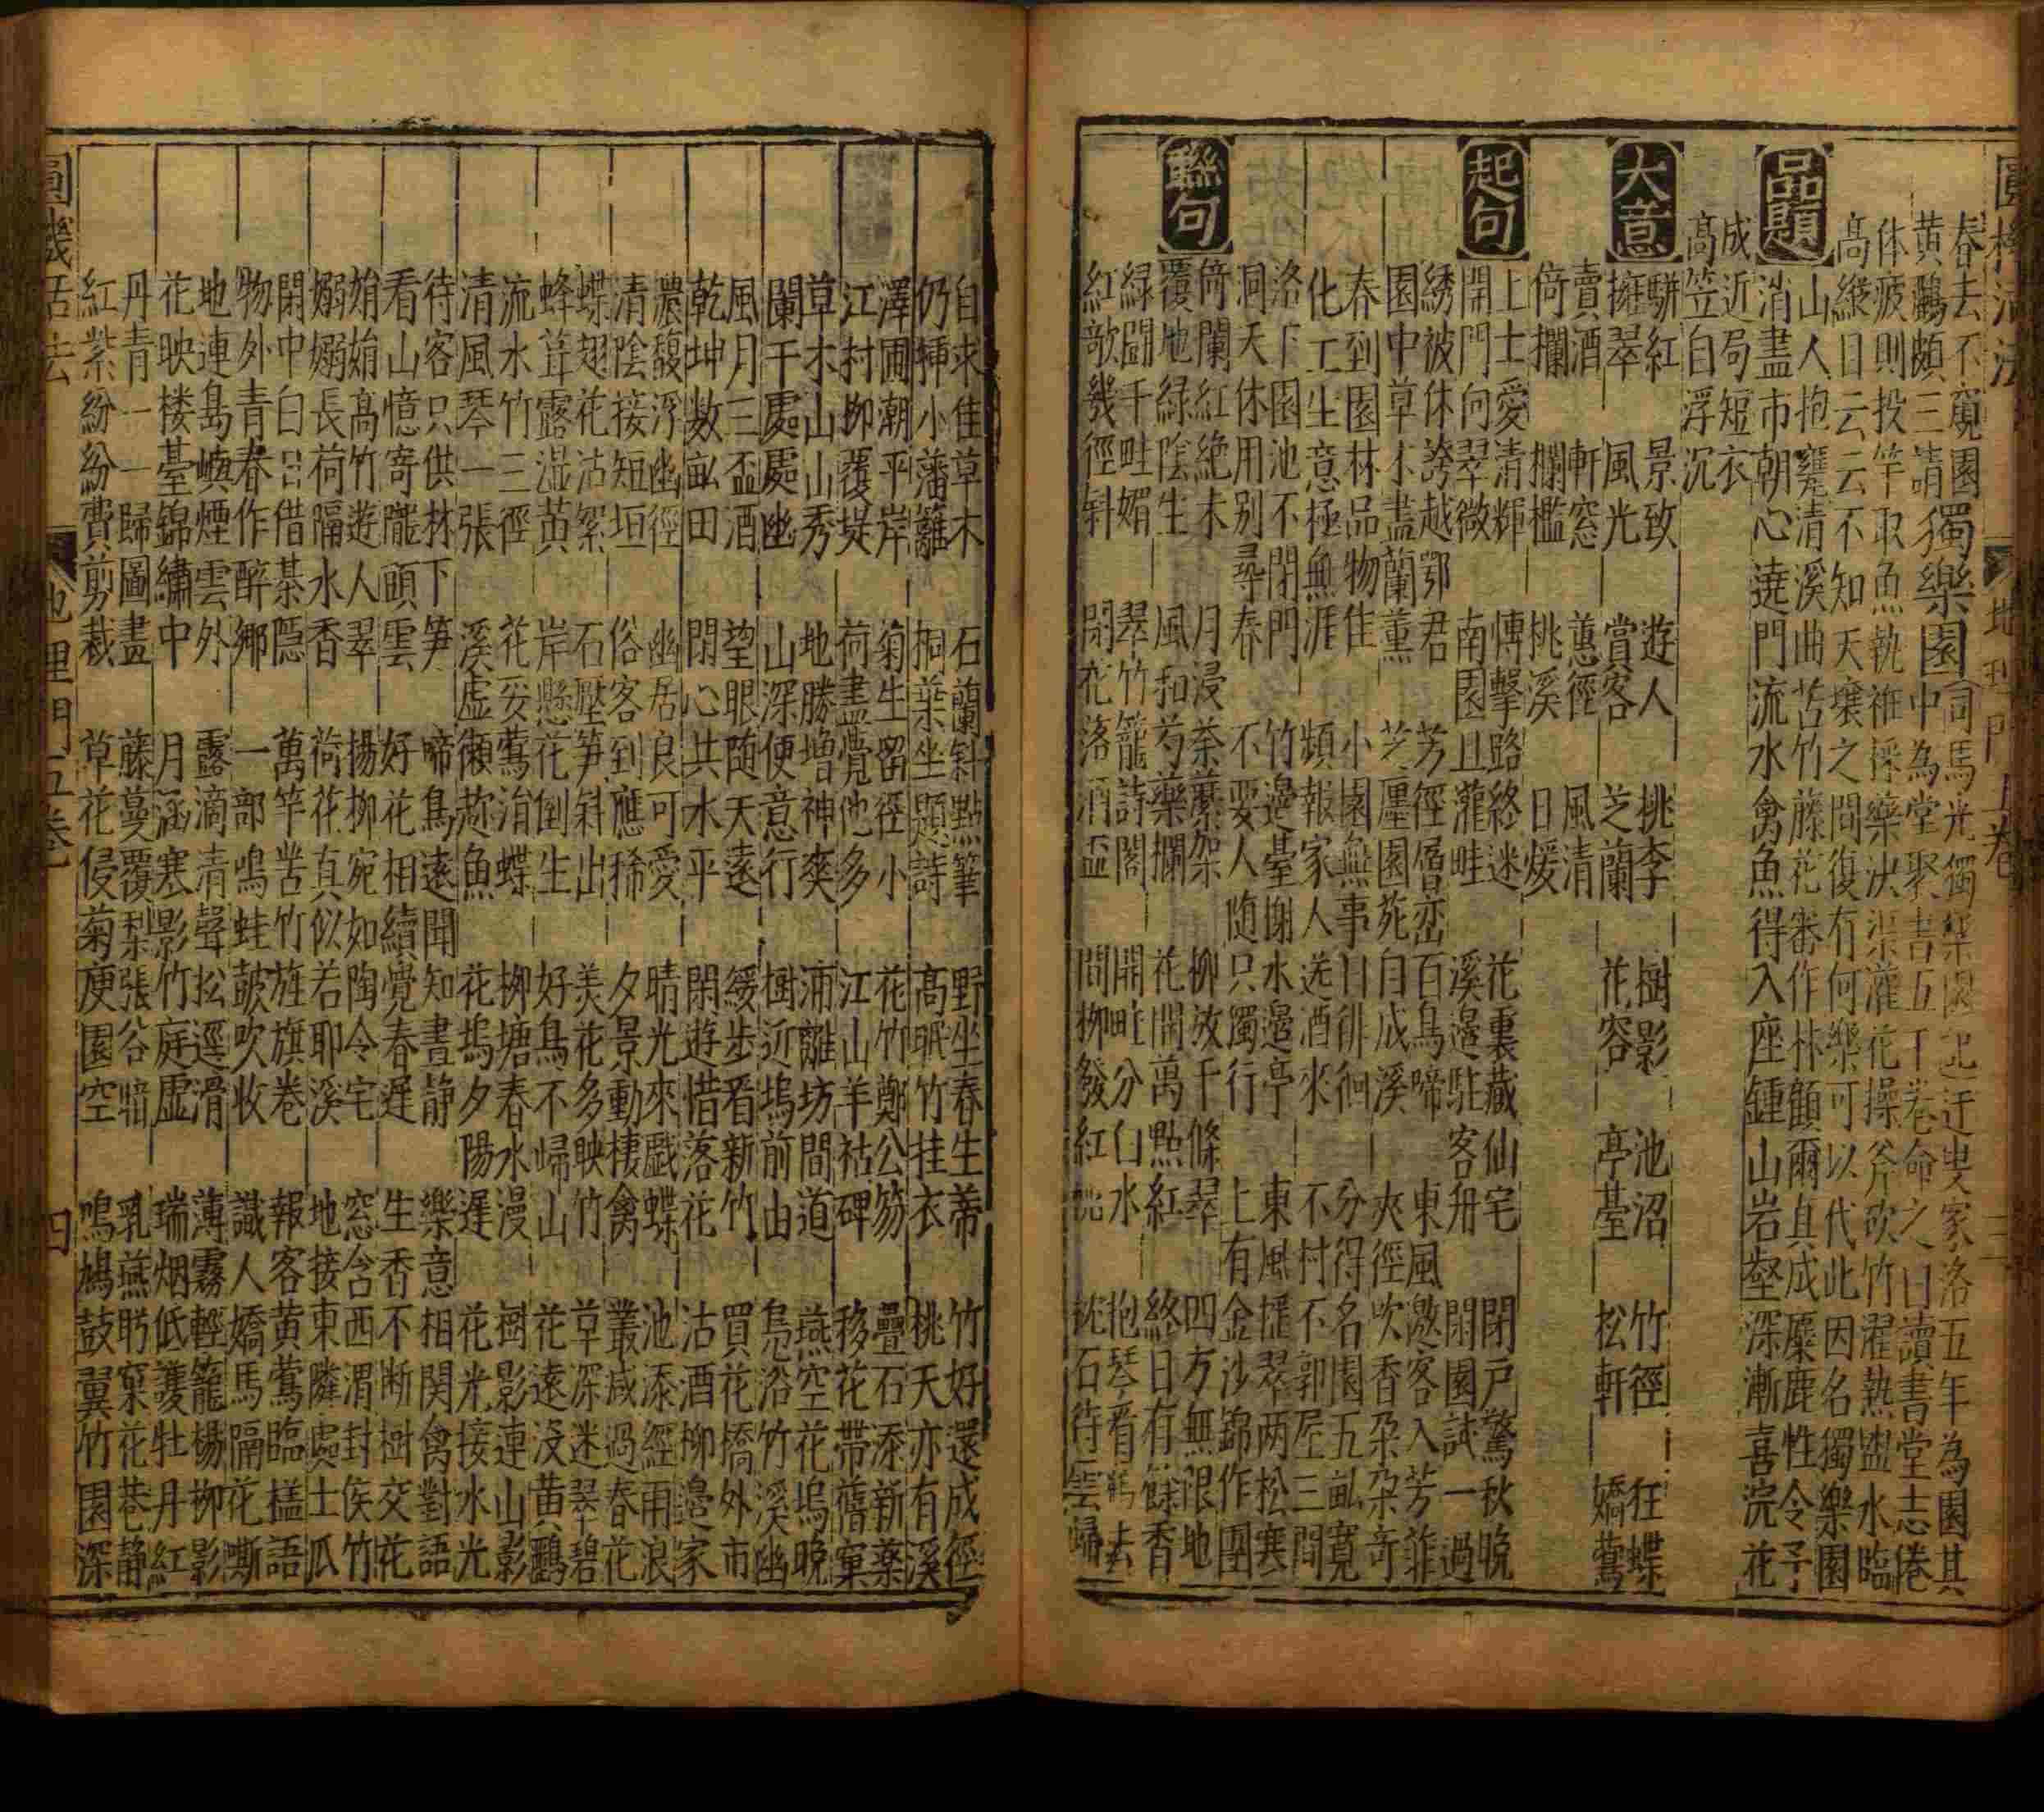 圓機活法 地理門五卷 三
春去不窺園
黄鸝頗三請 獨樂園 司馬光獨樂園記迂叟家洛五年為園其
中為堂聚書五千卷命之曰讀書堂志倦
体疲則投竿取魚執袵採藥決渠灌花操斧砍竹濯熱盥水臨
高縱目云云不知天壤之間復有何樂可以代此因名獨樂園
品題
山人抱甕清溪曲苦竹藤花審作林顧爾真成麋鹿性令予
消盡市朝心遶門流水禽魚得入座鍾山岩壑深漸喜浣花
成近局短衣
高笠白浮沉
大意
駢紅 景致 遊人 桃李 樹影 池沼 竹徑 狂蝶
擁翠 風光 賞客 芝蘭 花容 亭臺 松軒 嬌鶯
賣酒 軒窓 蕙徑 風清
倚欄 欄檻 桃溪 日煖
起句
上士愛清輝 傅擊路終迷 花裏藏仙宅 閉戸驚秋晩
開門向翠微 南園且灌畦 溪邉駐客舟 閑園試一過
綉被休誇越鄂君 芳徑層巒百鳥啼 東風邀客入芳菲
園中草木盡蘭薫 芝廛園苑自成溪 夾徑吹香朶朶竒
春到園林品物佳 小園無事日徘徊 分得名園五畝寛
化工生意極無涯 頻報家人送酒來 不村不郭屋三間
洛下園池不閉門 竹邉臺榭水邉亭 東風摇翠両松寒
洞天休用别尋春 不要人随只獨行 上有金沙錦作團
聯句
倚闌紅絶未 月浸荼蘼架 柳放千條翠 四方無限地
覆地緑陰生 風和芍藥欄 花開萬點紅 終日有餘香
緑鬪千畦媚 翠竹籠詩閣 開畦分白水 抱琴看鶴去
紅歌幾徑斜 閑花落酒盃 問柳發紅桃 枕石待雲歸
自求佳草木 石蘭斜點筆 野坐春生蒂 竹好還成徑
仍挿小藩籬 桐葉坐題詩 高眠竹挂衣 桃天亦有溪
澤圃潮平岸 菊生留徑小 花竹鄭公笏 疊石添新藥
江村柳覆堤 荷盡覺他多 江山羊祜碑 移花帶舊窠
草木山山秀 地勝増神爽 浦離坊間道 燕空花塢晩
闌干處處幽 山深便意行 樹近塢前由 凫浴竹溪幽
風月三盃酒 望眼随天遠 緩歩看新竹 買花橋外市
乾坤数畝田 閑心共水平 閑遊惜落花 沽酒柳邉家
濃馥浮幽徑 幽居良可愛 晴光來戯蝶 池添經雨浪
清陰接短垣 俗客到應稀 夕景動棲禽 叢咸過春花
蝶翅花沾絮 石壓笋斜出 羙花多映竹 草深迷翠碧
蜂葺露湿黄 岸懸花倒生 好鳥不歸山 花遠没黄鸝
流水竹三徑 花妥鶯捎蝶 柳塘春水漫 樹影連山影
清風琴一張 溪虚懶趂魚 花塢夕陽遲 花光接水光
待客只供林下笋 啼鳥遠聞知晝静 樂意相関禽對語
看山憶寄隴頭雲 好花相續覺春遲 生香不断樹交花
娟娟高竹遊人翠 揚柳宛如陶令宅 窓含西渭封侯竹
嫋嫋長荷隔水香 荷花真似若耶溪 地接東隣處士瓜
閑中白日借棊隠 萬竿苦竹旌旗巻 報客黄鶯臨檻語
物外青春作醉郷 一部鳴蛙皷吹收 識人嬌馬隔花嘶
地連島嶼煙雲外 露滴清聲松逕滑 薄霧輕籠楊柳影
花映楼臺錦繡中 月涵寒影竹庭虚 瑞烟低護牡丹紅
丹青一一歸圖盡 藤蔓覆梨張谷暗 乳燕眄窠花巷静
紅紫紛紛費剪裁 草花侵菊庾園空 鳴鳩鼓翼竹園深
圓機活法 地理門五卷 四